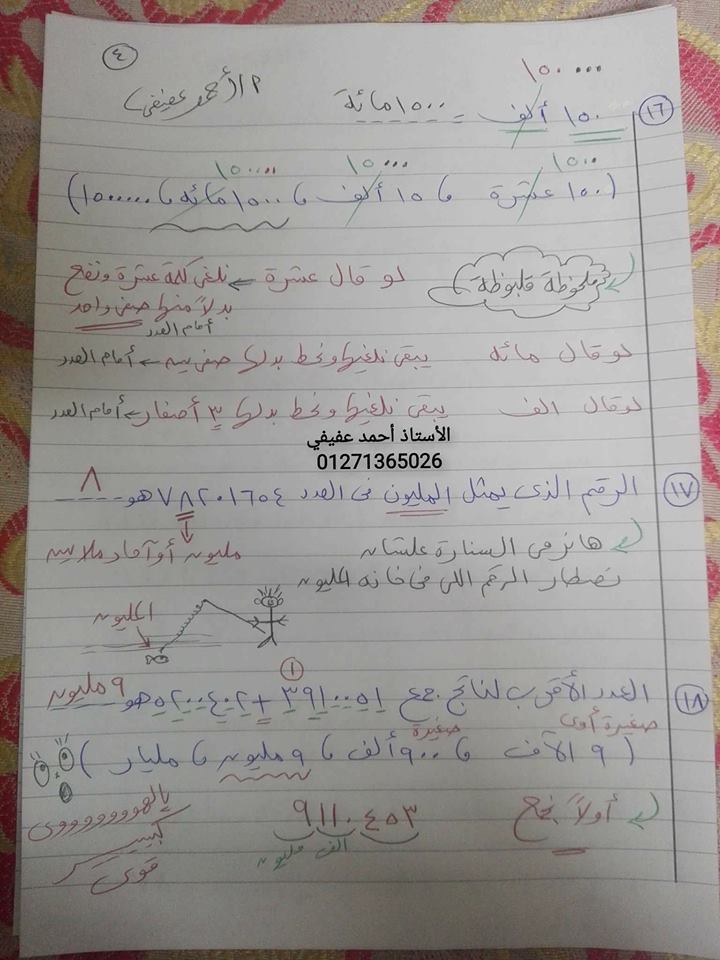 ٤
١٥٠٠٠٠
١٦ ١٥٠ ألف = ١٥٠٠ مائة م/أحمد عفيفي
١٥٠٠ ١٥٠٠٠ ١٥٠٠٠٠
(١٥٠ عشرة ، ١٥ ألف ، ١٥٠٠ مائة ، ١٥٠٠٠٠٠)
ملحوظة قلبوظة لو قال عشرة ← نلغي كلمة عشرة ونضع
بدلاً منها صفر واحد
أمام العدد
لو قال مائه يبقى نلغيها ونحط بدلها صفرين ← أمام العدد
لو قال الف يبقى نلغيها ونحط بدلها ٣ أصفار ← أمام العدد
الأستاذ أحمد عفيفي
01271365026
١٧ الرقم الذي يمثل المليون في العدد ٧٨٢٠١٦٥٤ هو ٨
هانرمى السنارة علشان مليون أو آحاد ملايين
نصطاد الرقم اللي في خانه المليون
المليون
١
١٨ العدد الأقرب لناتج جمع ٣٩١٠٠٥١ + ٥٢٠٠٤٠٢ هو ٩ مليون
صغيرة أوى صغيرة
(٩ الآف ، ٩٠٠ ألف ، ٩ مليون ، مليار)
أولاً نجمع ٩١١٠٤٥٣ يالهووووووى
الف مليون كبييير
قوى